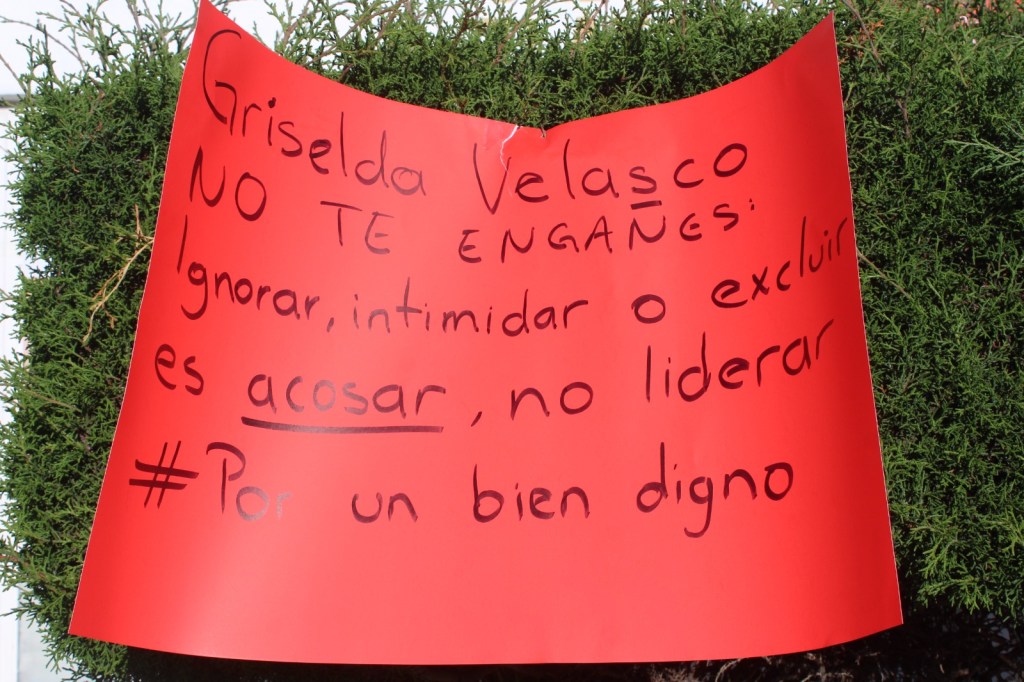 Griselda Velasco
NO TE ENGAÑES:
Ignorar, intimidar o excluir
es acosar, no liderar
#Por un bien digno